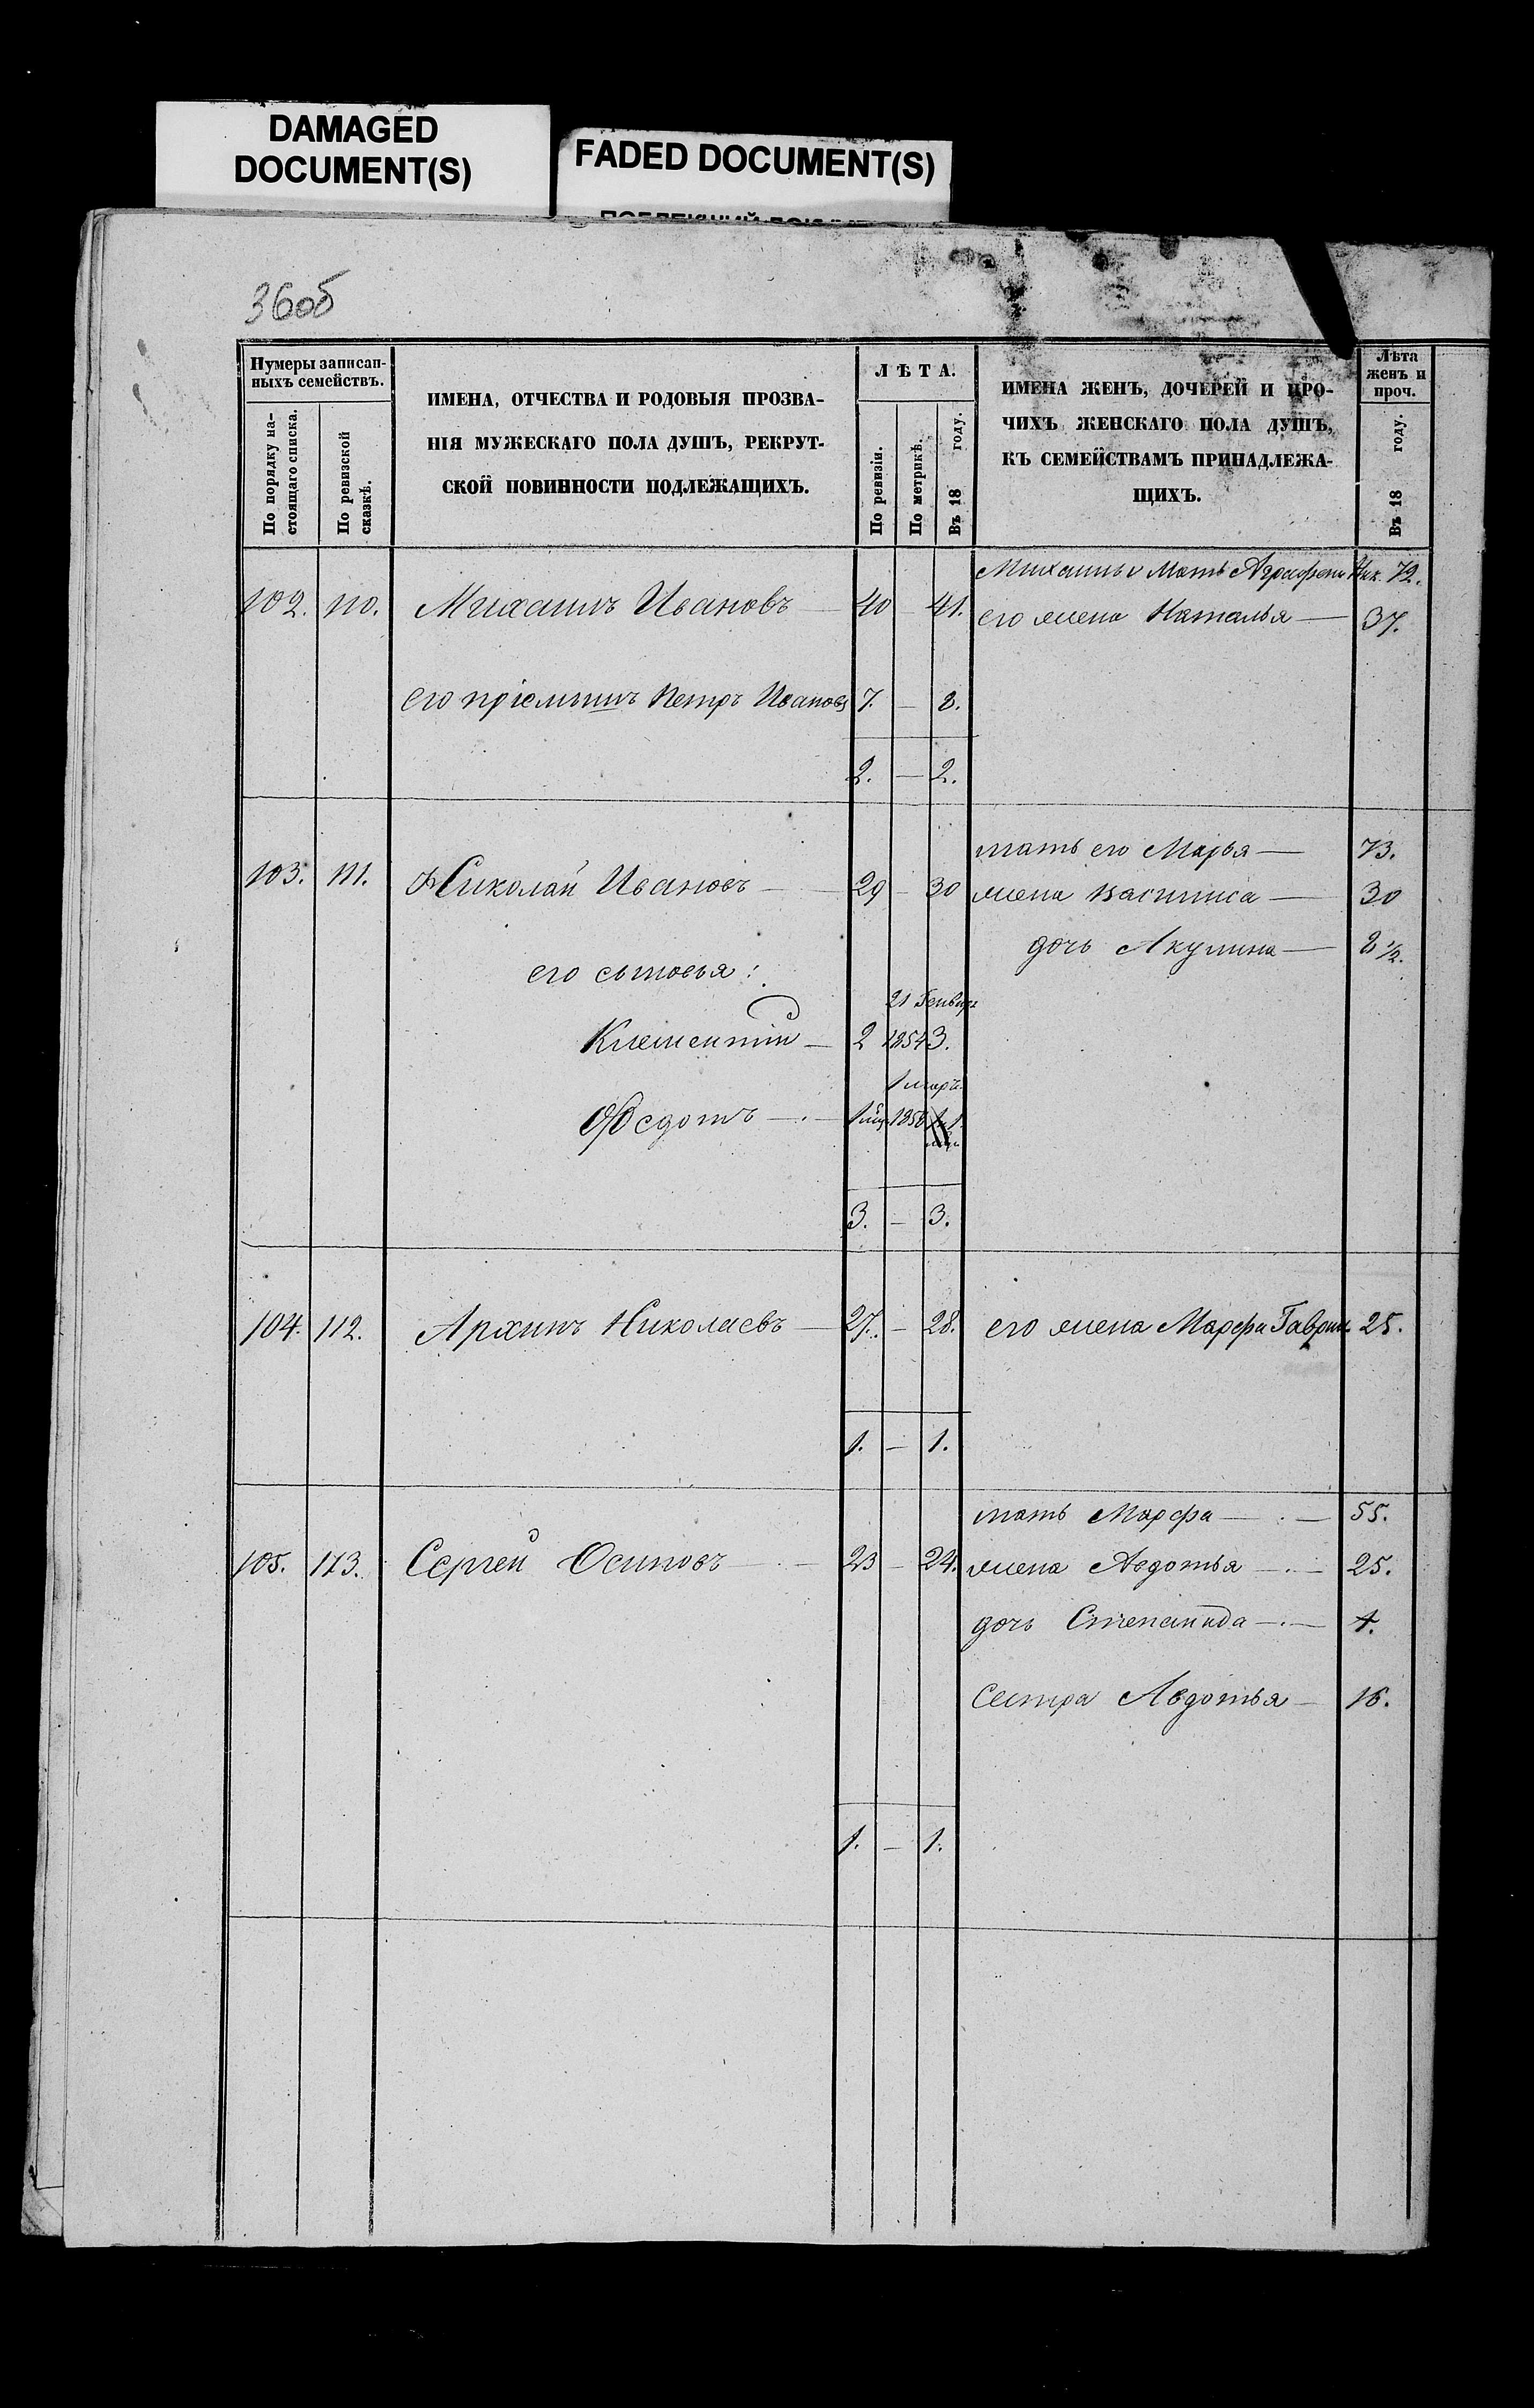 DAMAGED
DOCUMENT(S)
FADED DOCUMENT(S)
36об
Нумеры записан-
ныхъ семействъ.
По порядку на-
стоящаго списка.
По ревизской
сказкѣ.
ИМЕНА, ОТЧЕСТВА И РОДОВЫЯ ПРОЗВА-
НІЯ МУЖЕСКАГО ПОЛА ДУШЪ, РЕКРУТ-
СКОЙ ПОВИННОСТИ ПОДЛЕЖАЩИХЪ.
ЛѢТА.
По ревизіи.
По метрикѣ.
Въ 18 году.
ИМЕНА ЖЕНЪ, ДОЧЕРЕЙ И ПРО-
ЧИХЪ ЖЕНСКАГО ПОЛА ДУШЪ,
КЪ СЕМЕЙСТВАМЪ ПРИНАДЛЕЖА-
ЩИХЪ.
Лѣта
женъ и
проч.
Въ 18 году.
Михаилы Мать Аграфена Ник. 72.
102. 110. Михаилъ Ивановъ — 40 — 41. его жена Наталья — 37.
его пріемышъ Петръ Ивановъ 7. — 8.
2. — 2.
мать его Марья — 73.
103. 111. Николай Ивановъ — 29 — 30 жена Василиса — 30
дочь Акулина — 2 1/2.
его сыновья:
21 Генвар
Клементій — 2 1854 3.
1 мар.
Федотъ — 1 1858 1
3. — 3.
104. 112. Архипъ Николаевъ — 27. — 28. его жена Марфа Гаврил. 25.
1. — 1.
мать Марфа — 55.
105. 113. Сергей Осиповъ — 23 — 24. жена Авдотья — 25.
дочь Степанида — 4.
Сестра Авдотья — 16.
1. — 1.